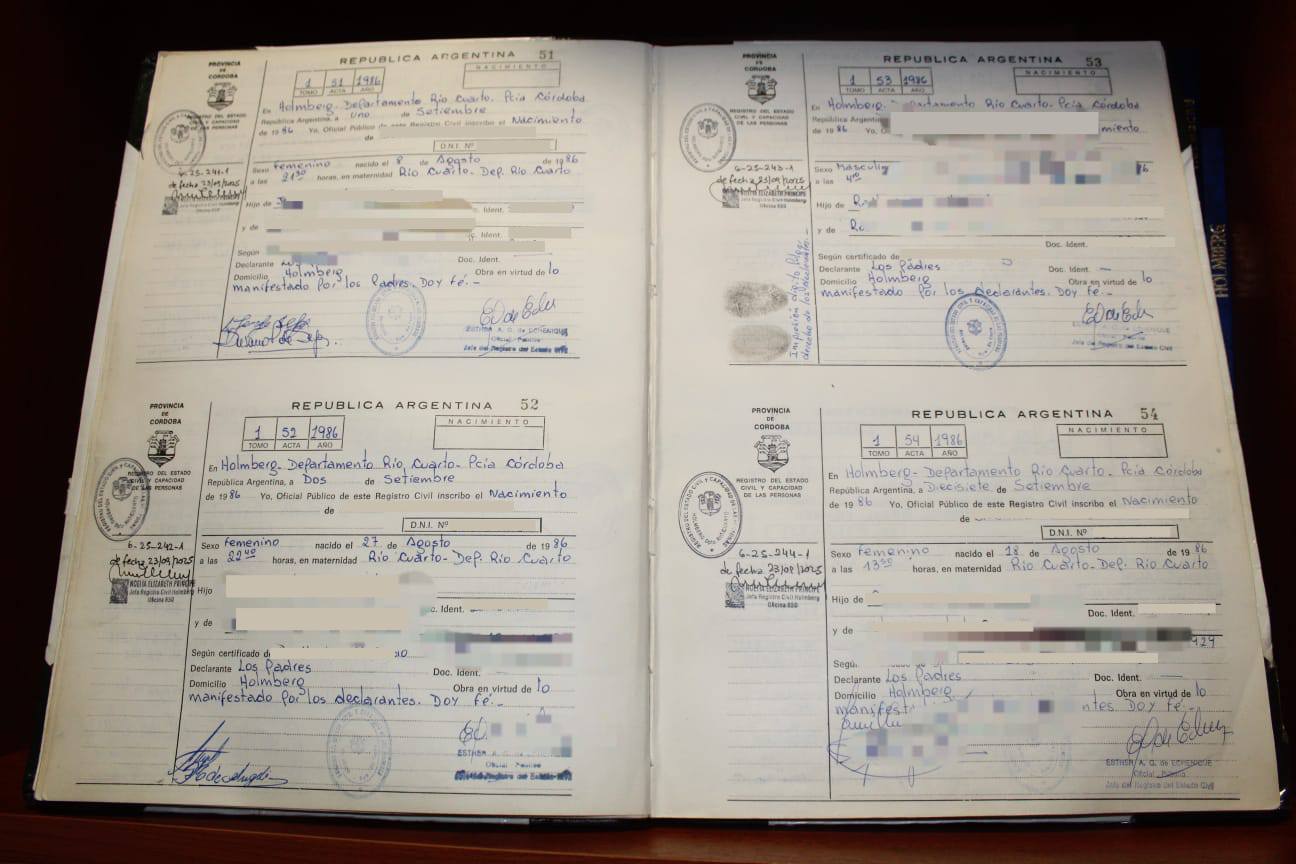 REPUBLICA ARGENTINA 51
PROVINCIA
DE
CORDOBA
NACIMIENTO
1 51 1986
TOMO ACTA AÑO
REGISTRO DEL ESTADO
CIVIL Y CAPACIDAD
DE LAS PERSONAS
En Holmberg-Departamento Río Cuarto. Pcia Córdoba
República Argentina, a uno de Setiembre
de 1986 Yo, Oficial Público de este Registro Civil inscribo el Nacimiento
de
D.N.I. Nº
6-25-241-1
de fecha 23/09/2025
Jefa Registro Civil Holmberg
Oficina 850
Sexo Femenino nacido el 8 de Agosto de 1986
a las 21³⁰ horas, en maternidad Río Cuarto. Dep. Río Cuarto
Hijo de
Doc. Ident.
y de
Doc. Ident.
Según
Declarante Doc. Ident.
Domicilio Holmberg Obra en virtud de lo
manifestado por los Padres. Doy Fé.-
ESTHER A. G. de ECHENIQUE
Oficial Público
Jefa del Registro del Estado Civil
REPUBLICA ARGENTINA 52
PROVINCIA
DE
CORDOBA
NACIMIENTO
1 52 1986
TOMO ACTA AÑO
REGISTRO DEL ESTADO
CIVIL Y CAPACIDAD
DE LAS PERSONAS
En Holmberg-Departamento Río Cuarto-Pcia Córdoba
República Argentina, a Dos de Setiembre
de 1986 Yo, Oficial Público de este Registro Civil inscribo el Nacimiento
de
D.N.I. Nº
6-25-242-1
de fecha 23/09/2025
NOELIA ELIZABETH PRINCIPE
Jefa Registro Civil Holmberg
Oficina 850
Sexo Femenino nacido el 27 de Agosto de 1986
a las 22⁴⁰ horas, en maternidad Río Cuarto-Dep. Río Cuarto
Hijo
c. Ident.
y de
Según certificado d
Declarante Los Padres Doc. Ident.
Domicilio Holmberg Obra en virtud de lo
manifestado por los declarantes. Doy Fé.-
ESTHER A. G. de ECHENIQUE
Oficial Público
Jefa del Registro del Estado Civil
REPUBLICA ARGENTINA 53
PROVINCIA
DE
CORDOBA
NACIMIENTO
1 53 1986
TOMO ACTA AÑO
REGISTRO DEL ESTADO
CIVIL Y CAPACIDAD
DE LAS PERSONAS
En Holmberg- Departamento Río Cuarto. Pcia Córdoba
República Argentina, a
de 1986 Yo, O miento
6-25-243-1
de fecha 23/09/2025
NOELIA ELIZABETH PRINCIPE
Jefa Registro Civil Holmberg
Oficina 850
Sexo Masculi
a las
Hijo de
y de
Doc. Ident.
Según certificado de
Declarante Los Pádres Doc. Ident. —
Domicilio Holmberg Obra en virtud de lo
manifestado por los declarantes. Doy Fé.-
Impresión dígito pulgar
derecho de los declarantes.-
ECHENIQUE
Jefa del Registro del Estado Civil
REPUBLICA ARGENTINA 54
PROVINCIA
DE
CORDOBA
NACIMIENTO
1 54 1986
TOMO ACTA AÑO
REGISTRO DEL ESTADO
CIVIL Y CAPACIDAD
DE LAS PERSONAS
En Holmberg-Departamento Río Cuarto-Pcia Córdoba
República Argentina, a Diecisiete de Setiembre
de 1986 Yo, Oficial Público de este Registro Civil inscribo el Nacimiento
de
D.N.I. Nº
6-25-244-1
de fecha 23/09/2025
NOELIA ELIZABETH PRINCIPE
Jefa Registro Civil Holmberg
Oficina 850
Sexo Femenino nacido el 18 de Agosto de 1986
a las 13³⁰ horas, en maternidad Río Cuarto-Dep. Río Cuarto
Hijo de
Doc. Ident.
y de
Declarante Los Padres Doc. Ident. —
Domicilio Holmberg Obra en virtud de lo
manifest ntes. Doy Fé.-
ESTHER A. G. de ECHENIQUE
Oficial Público
Jefa del Registro del Estado Civil
HOLMBERG